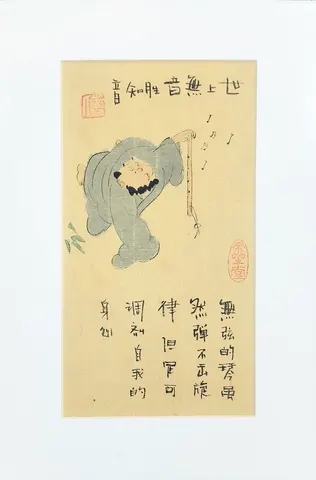 世上無音胜知音
無弦的琴虽
然弹不出旋
律但是可
调剂自我的
身心